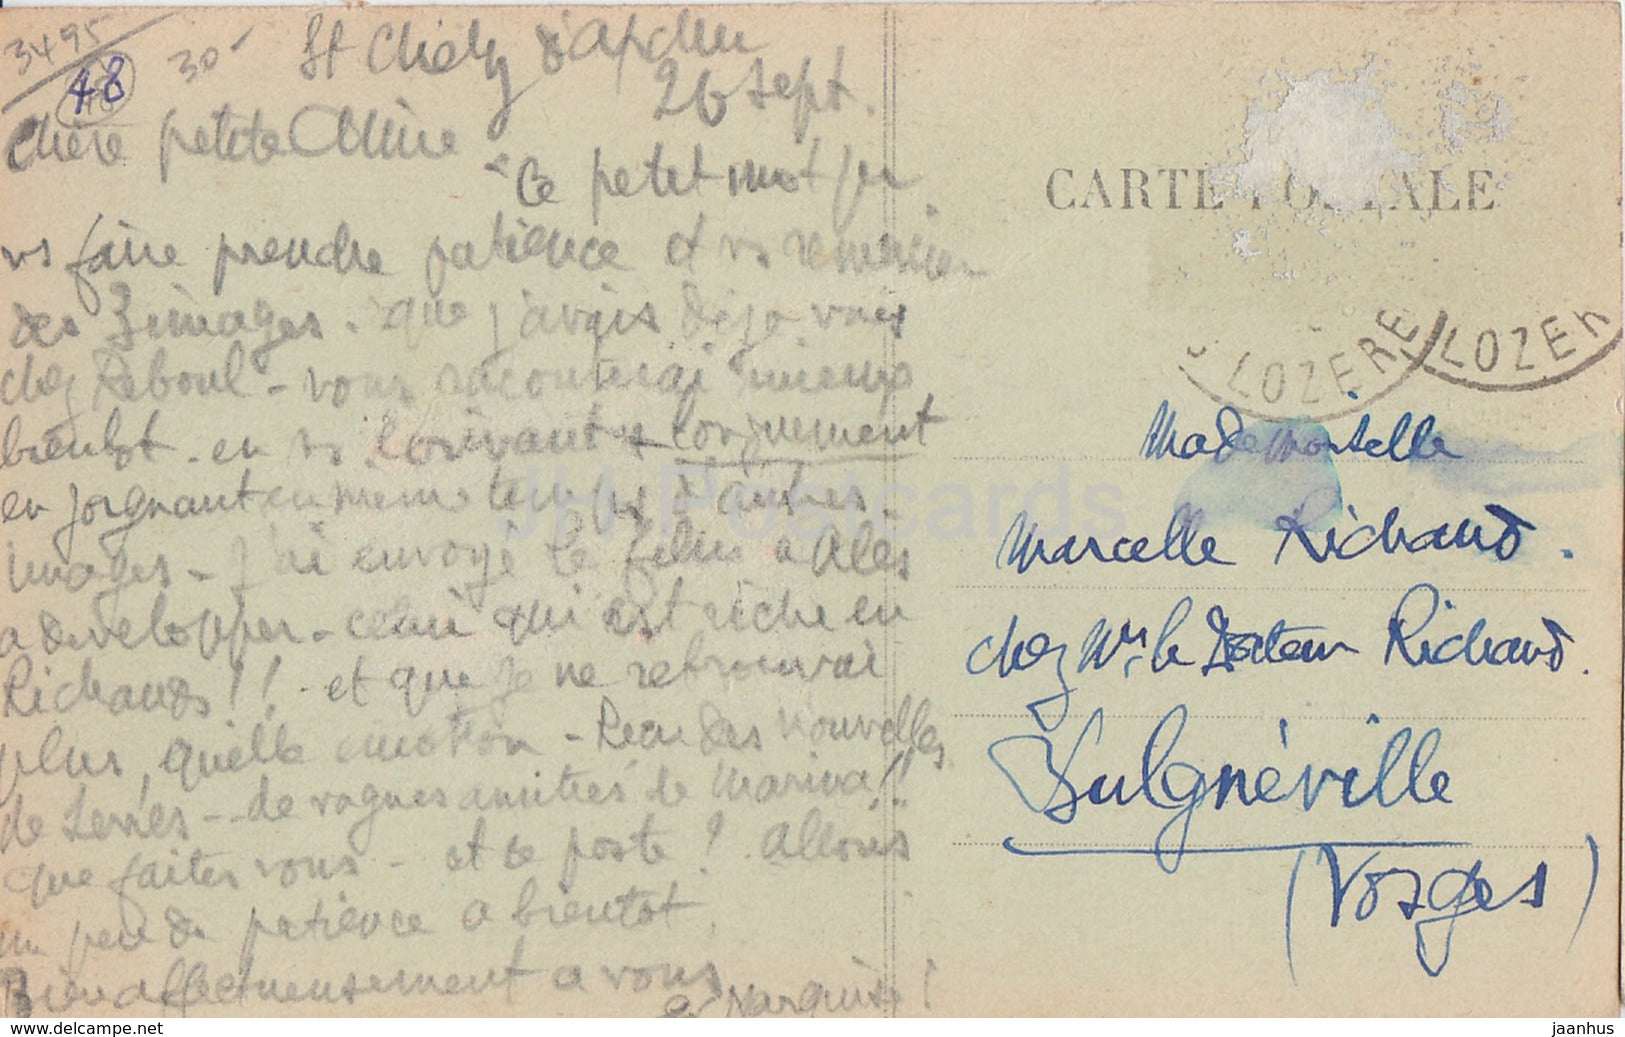 3495
48
30-
St Chély d'Apcher
26 Sept.
Chère petite Amie
Ce petit mot pr
vs faire prendre patience et vs remercier
des 3 images. que j'avais déjà vues
chez Reboul - vous raconterai mieux
bientôt. en vs écrivant + longuement
en joignant en meme temps d'autres
images - J'ai envoyé le film a Ales
a developper - celui qui est riche en
Richauds!! - et que je ne retrouvai
plus, quelle emotion - Reçu des nouvelles
de Serres -- de vagues amitiés de Marina!!
que faites vous - et ce poste? Allons
un peu de patience a bientot
Bien affectueusement a vous
Marquise!
CARTE POSTALE
LOZERE
LOZER
Mademoiselle
Marcelle Richaud.
chez Mr. le Docteur Richaud.
Bulgnéville
(Vosges)
JH Postcards
www.delcampe.net
jaanhus